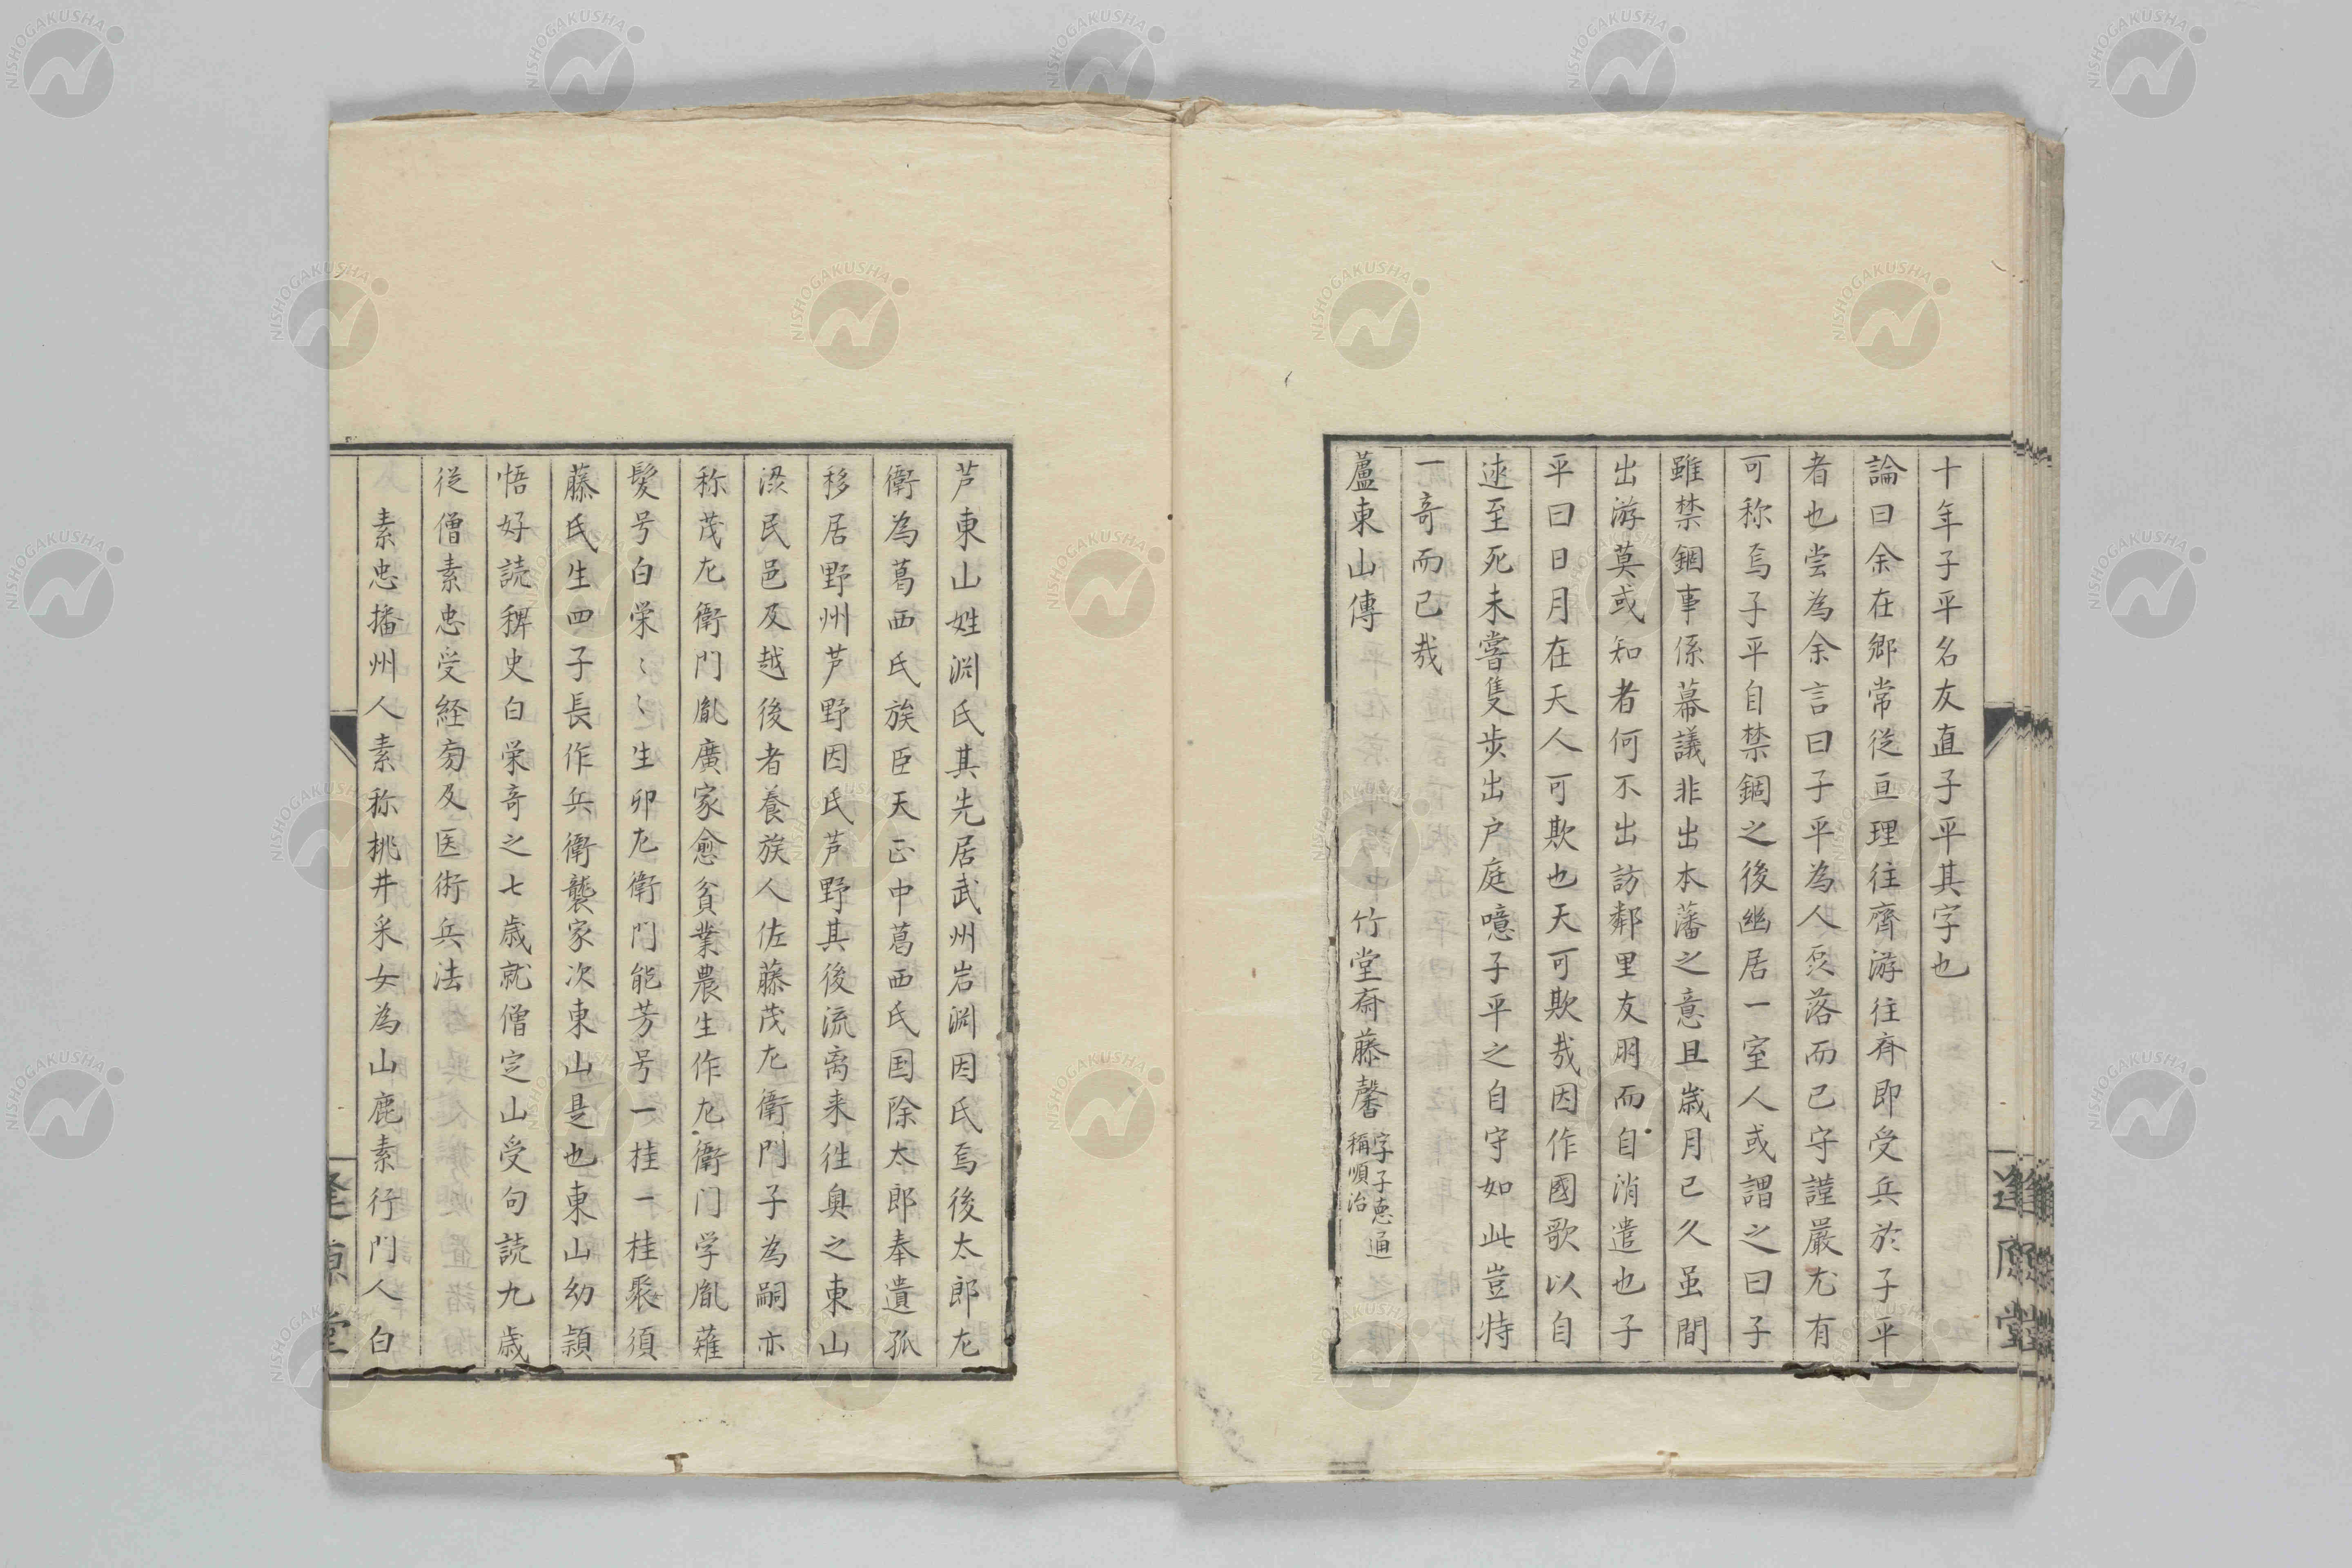 十年子平名友直子平其字也
論曰余在郷常従亘理往齊游往斉即受兵於子平
者也尝為余言曰子平為人炁落而已守謹嚴尤有
可称焉子平自禁錮之後幽居一室人或謂之曰子
雖禁錮事係幕議非出本藩之意且歳月已久虽間
出游莫或知者何不出訪鄰里友朋而自消遣也子
平曰日月在天人可欺也天可欺哉因作國歌以自
述至死未嘗隻歩出户庭噫子平之自守如此豈特
一奇而已哉
蘆東山傳 竹堂斎藤馨 字子恵通稱順治
芦東山姓渊氏其先居武州岩渊因氏焉後太郎左
衛為葛西氏族臣天正中葛西氏国除太郎奉遺孤
移居野州芦野因氏芦野其後流离来徃奥之東山
渋民邑及越後者養族人佐藤茂左衛門子為嗣亦
称茂左衛門胤廣家愈貧業農生作左衛门学胤薙
髪号白栄〻〻生卯左衛门能芳号一桂一桂聚須
藤氏生四子長作兵衛襲家次東山是也東山幼頴
悟好読稗史白栄奇之七歳就僧定山受句読九歳
従僧素忠受経旁及医術兵法
素忠播州人素称桃井采女為山鹿素行門人白
逢原堂